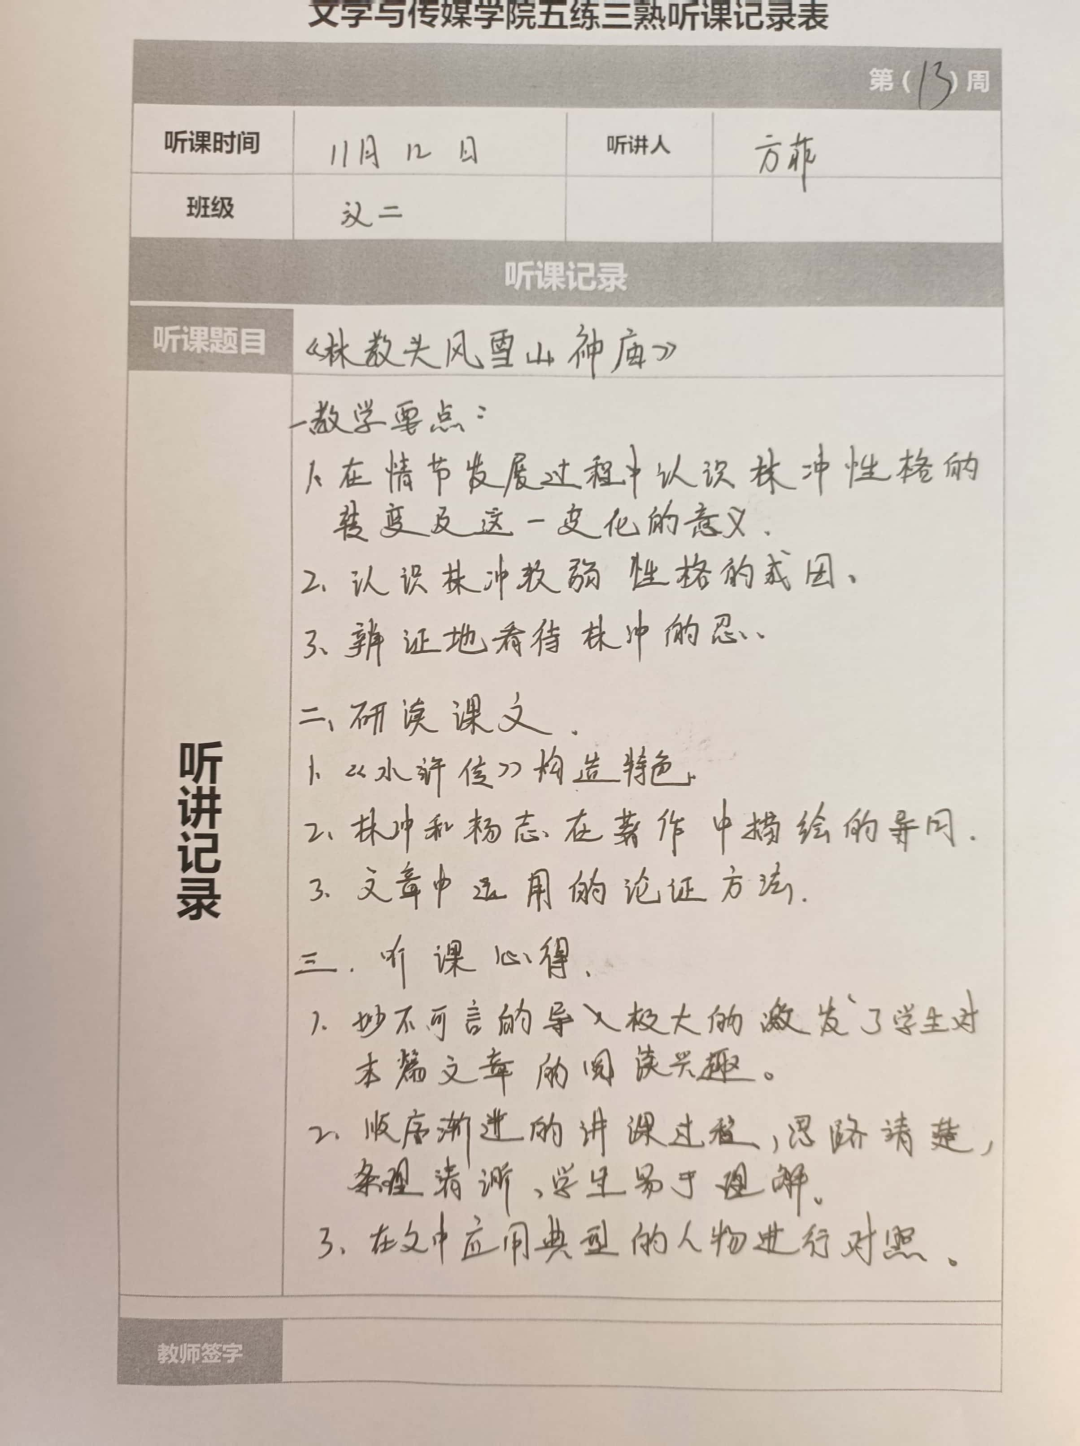 文学与传媒学院五练三熟听课记录表
第(13)周
听课时间 11月12日 听讲人 方菲
班级 汉二
听课记录
听课题目 《林教头风雪山神庙》
听讲记录
一教学要点：
1、在情节发展过程中认识林冲性格的
转变及这一变化的意义.
2、认识林冲软弱性格的成因、
3、辨证地看待林冲的忍、
二、研读课文.
1、《水浒传》构造特色.
2、林冲和杨志在著作中描绘的异同.
3、文章中运用的论证方法.
三.听课心得.
1、妙不可言的导入极大的激发了学生对
本篇文章的阅读兴趣。
2、顺序渐进的讲课过程,思路清楚,
条理清晰、学生易于理解。
3、在文中应用典型的人物进行对照。
教师签字